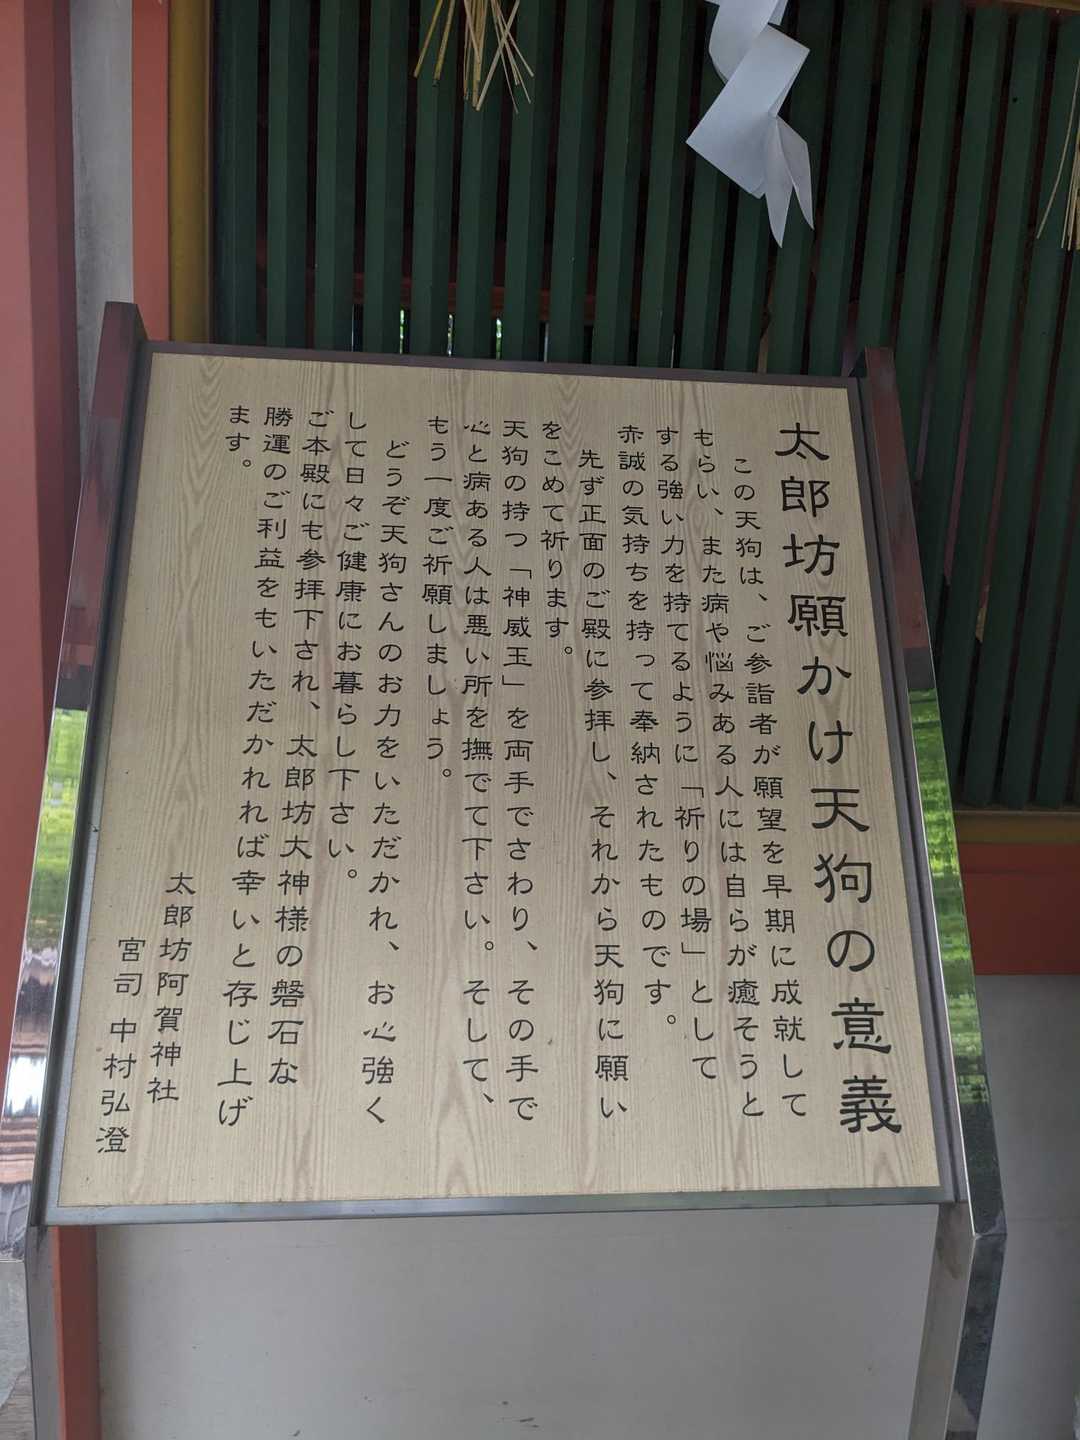 太郎坊願かけ天狗の意義
この天狗は、ご参詣者が願望を早期に成就して
もらい、また病や悩みある人には自らが癒そうと
する強い力を持てるように「祈りの場」として
赤誠の気持ちを持って奉納されたものです。
先ず正面のご殿に参拝し、それから天狗に願い
をこめて祈ります。
天狗の持つ「神威玉」を両手でさわり、その手で
心と病ある人は悪い所を撫でて下さい。そして、
もう一度ご祈願しましょう。
どうぞ天狗さんのお力をいただかれ、お心強く
して日々ご健康にお暮らし下さい。
ご本殿にも参拝下され、太郎坊大神様の磐石な
勝運のご利益をもいただかれれば幸いと存じ上げ
ます。
太郎坊阿賀神社
宮司 中村弘澄